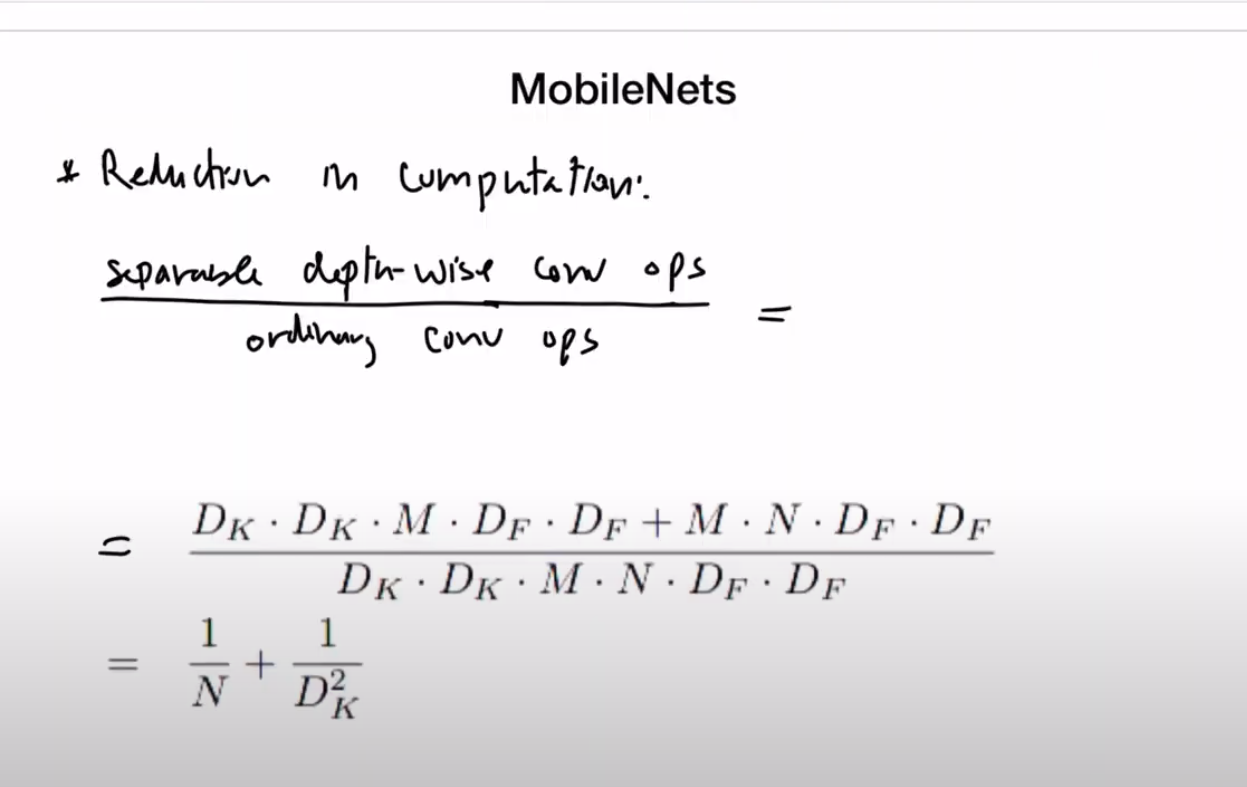 MobileNets
* Reduction in computation:
separable depth-wise conv ops
ordinary conv ops
=
= D_K · D_K · M · D_F · D_F + M · N · D_F · D_F
D_K · D_K · M · N · D_F · D_F
= 1/N + 1/D_K^2